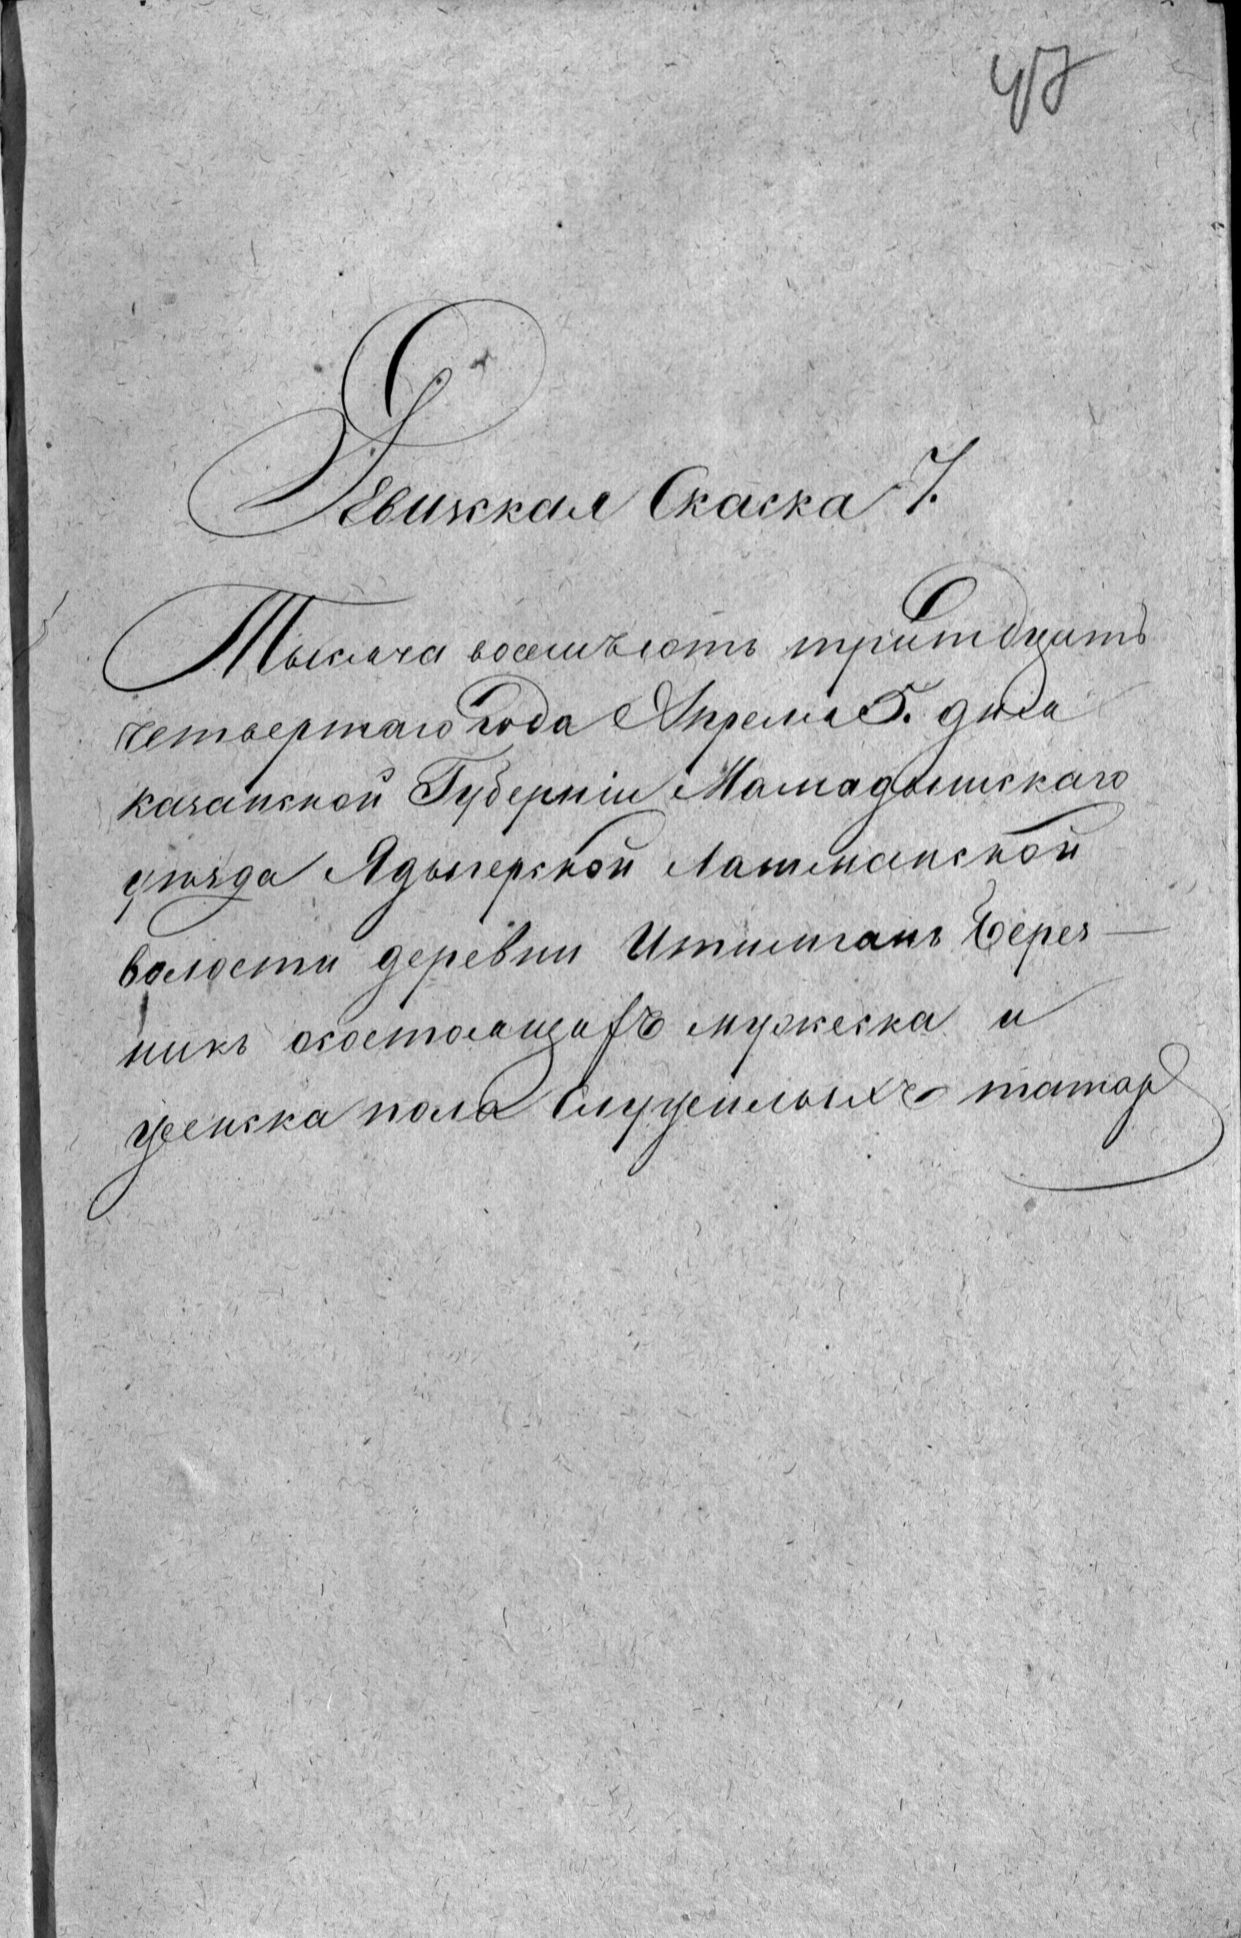 47
Ревижская Скаска 7.
Тысяча восемьсотъ тритдцать
четвертаго года Апреля 5. дня
казанской Губерніи Мамадышскаго
уѣзда Ядыгерской Лашманской
волости деревни Итимганъ Берез-
никъ осостоящихъ мужеска и
женска пола Служилыхъ татар